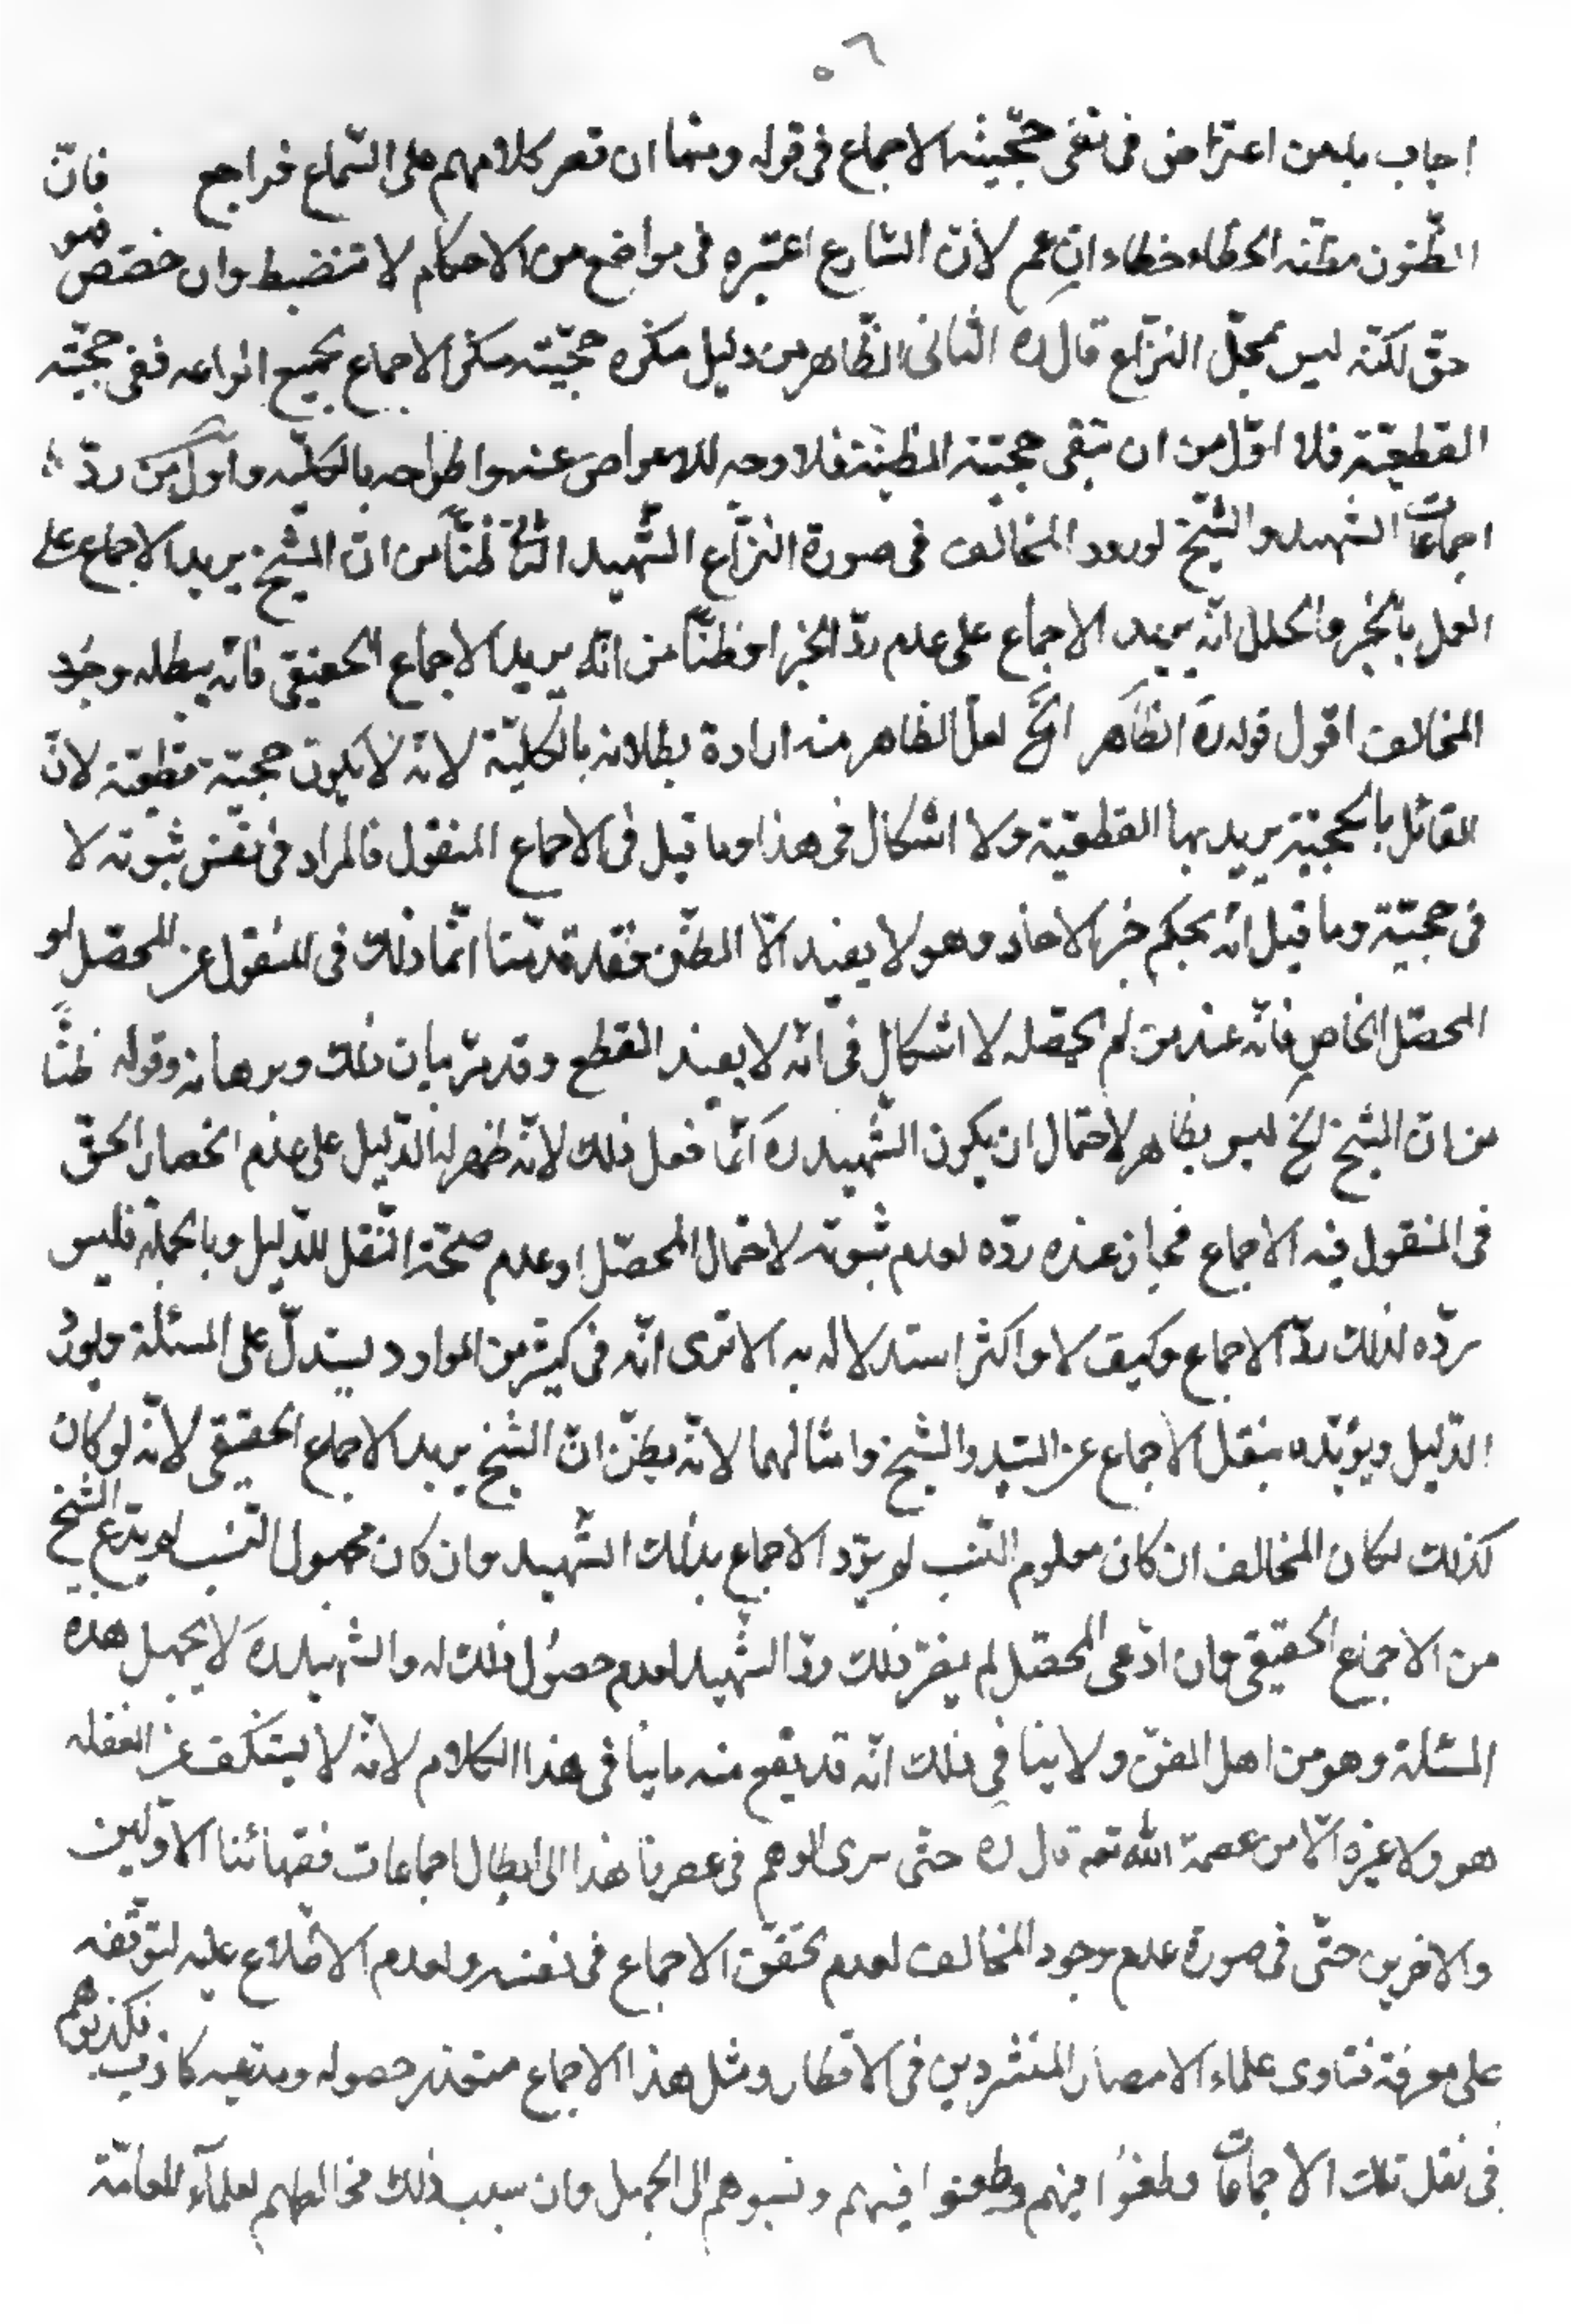 ٥٦
اجاب به من اعترض فى نفى حجّيّة الاجماع فى قوله ومنها ان قصر كلامهم على السّماع فراجع فانّ
الظّنون مظنّه الخطاء خطاء ان عم لانّ الشارع اعتبره فى مواضع من الاحكام لا تنضبط وان خصّص فهو
حقّ لكنّه ليس بمحلّ النزاع قال ره الثانى الظّاهر من دليل منكره حجّيّته منكر الاجماع بجميع انواعه ففى حجّيّته
القطعيّة فلا اقلّ من ان تبقى حجّيّته الظنيّة فلا وجه للاعراض عنه واطراحه بالكليّه واوّل من ردّ
اجماعات الشهيد والشّيخ لورود المخالف فى صورة النزاع الشّهيد الثّانى ظنّاً من انّ الشّيخ يريد الاجماع على
العمل بالخبر والحال انّه يريد الاجماع على عدم ردّ الخبر او ظنّاً من انّه يريد الاجماع الحقيقى فانّه يبطله وجود
المخالف اقول قوله ره الظّاهر الخ لعلّ الظاهر منه ارادة بطلانه بالكليّة لانّه لا يكون حجيّته قطعيّة لانّ
القائل بالحجيّة يريد بها القطعيّة ولا اشكال فى هذا وما قيل فى الاجماع المنقول فالمراد فى نفس ثبوته لا
فى حجيّته وما قيل انّه بحكم خبر الاحاد وهو لا يفيد الّا الظّن فقد قدّمنا انّما ذلك فى المنقول عن المحصّل او
المحصّل الخاصّ فانّه عند من لم يحصّله لا اشكال فى انّه لا يفيد القطع وقد مرّ بيان ذلك وبرهانه وقوله ظنّاً
من انّ الشيخ الخ ليس بظاهر لاحتمال ان يكون الشّهيد ره انّما فعل ذلك لانّه ظهر له الدّليل على عدم انحصار الحقّ
فى المنقول فيه الاجماع فجاز عنده ردّه لعدم ثبوته لاحتمال المحصّل او عدم صحّة النّقل للدّليل وبالجملة فليس
ردّه لذلك ردّ الاجماع وكيف لا واكثر استدلاله به الا ترى انّه فى كثير من الموارد يستدلّ على المسئلة ويورد
الدّليل ويؤيّده بنقل الاجماع عن السّيد والشّيخ وامثالهما لانّه يظنّ انّ الشّيخ يريد الاجماع الحقيقى لانّه لو كان
كذلك لكان المخالف ان كان معلوم النّسب لم يردّ الاجماع بذلك الشّهيد وان كان مجهول النّسب لم يدّع الشيخ
من الاجماع الحقيقى وان ادّعى المحصّل لم يضرّ ذلك ردّ الشّهيد لعدم حصول ذلك له والشّهيد ره لا يجهل هذه
المسئلة وهو من اهل الفنّ ولا ينافى ذلك انّه قد يقع منه ما ينافى هذا الكلام لانّه لا يستنكف عن الغفله
هو ولا غيره الّا من عصمة الله تعه قال ره حتّى سرى الوهم فى عصرنا هذا الى ابطال اجماعات فقهائنا الاوّلين
والاخرين حتّى فى صورة عدم وجود المخالف لعدم تحقّق الاجماع فى نفسه ولعدم الاطّلاع عليه لتوقّفه
على معرفة فتاوى علماء الامصار المنتشرين فى الاقطار ومثل هذا الاجماع متعذر حصوله ومدّعيه كاذب فكذبوهم
فى نقل تلك الاجماعات وطعنوا فيهم وطعنوا فيهم ونسبوهم الى الجهل وان سبب ذلك مخالطتهم لعلمآء العامّة